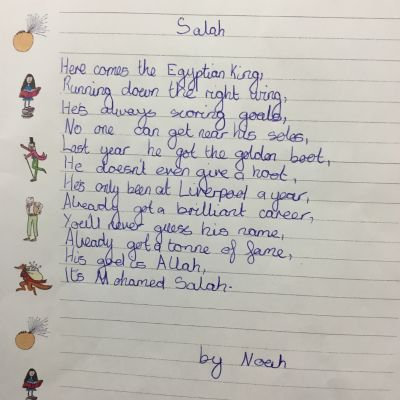 Salah
Here comes the Egyptian King,
Running down the right wing,
He's always scoring goals,
No one can get near his soles,
Last year he got the golden boot,
He doesn't even give a hoot,
He's only been at Liverpool a year,
Already got a brilliant career,
You'll never guess his name,
Already got a tonne of fame,
His god is Allah,
It's Mohamed Salah.
by Noah